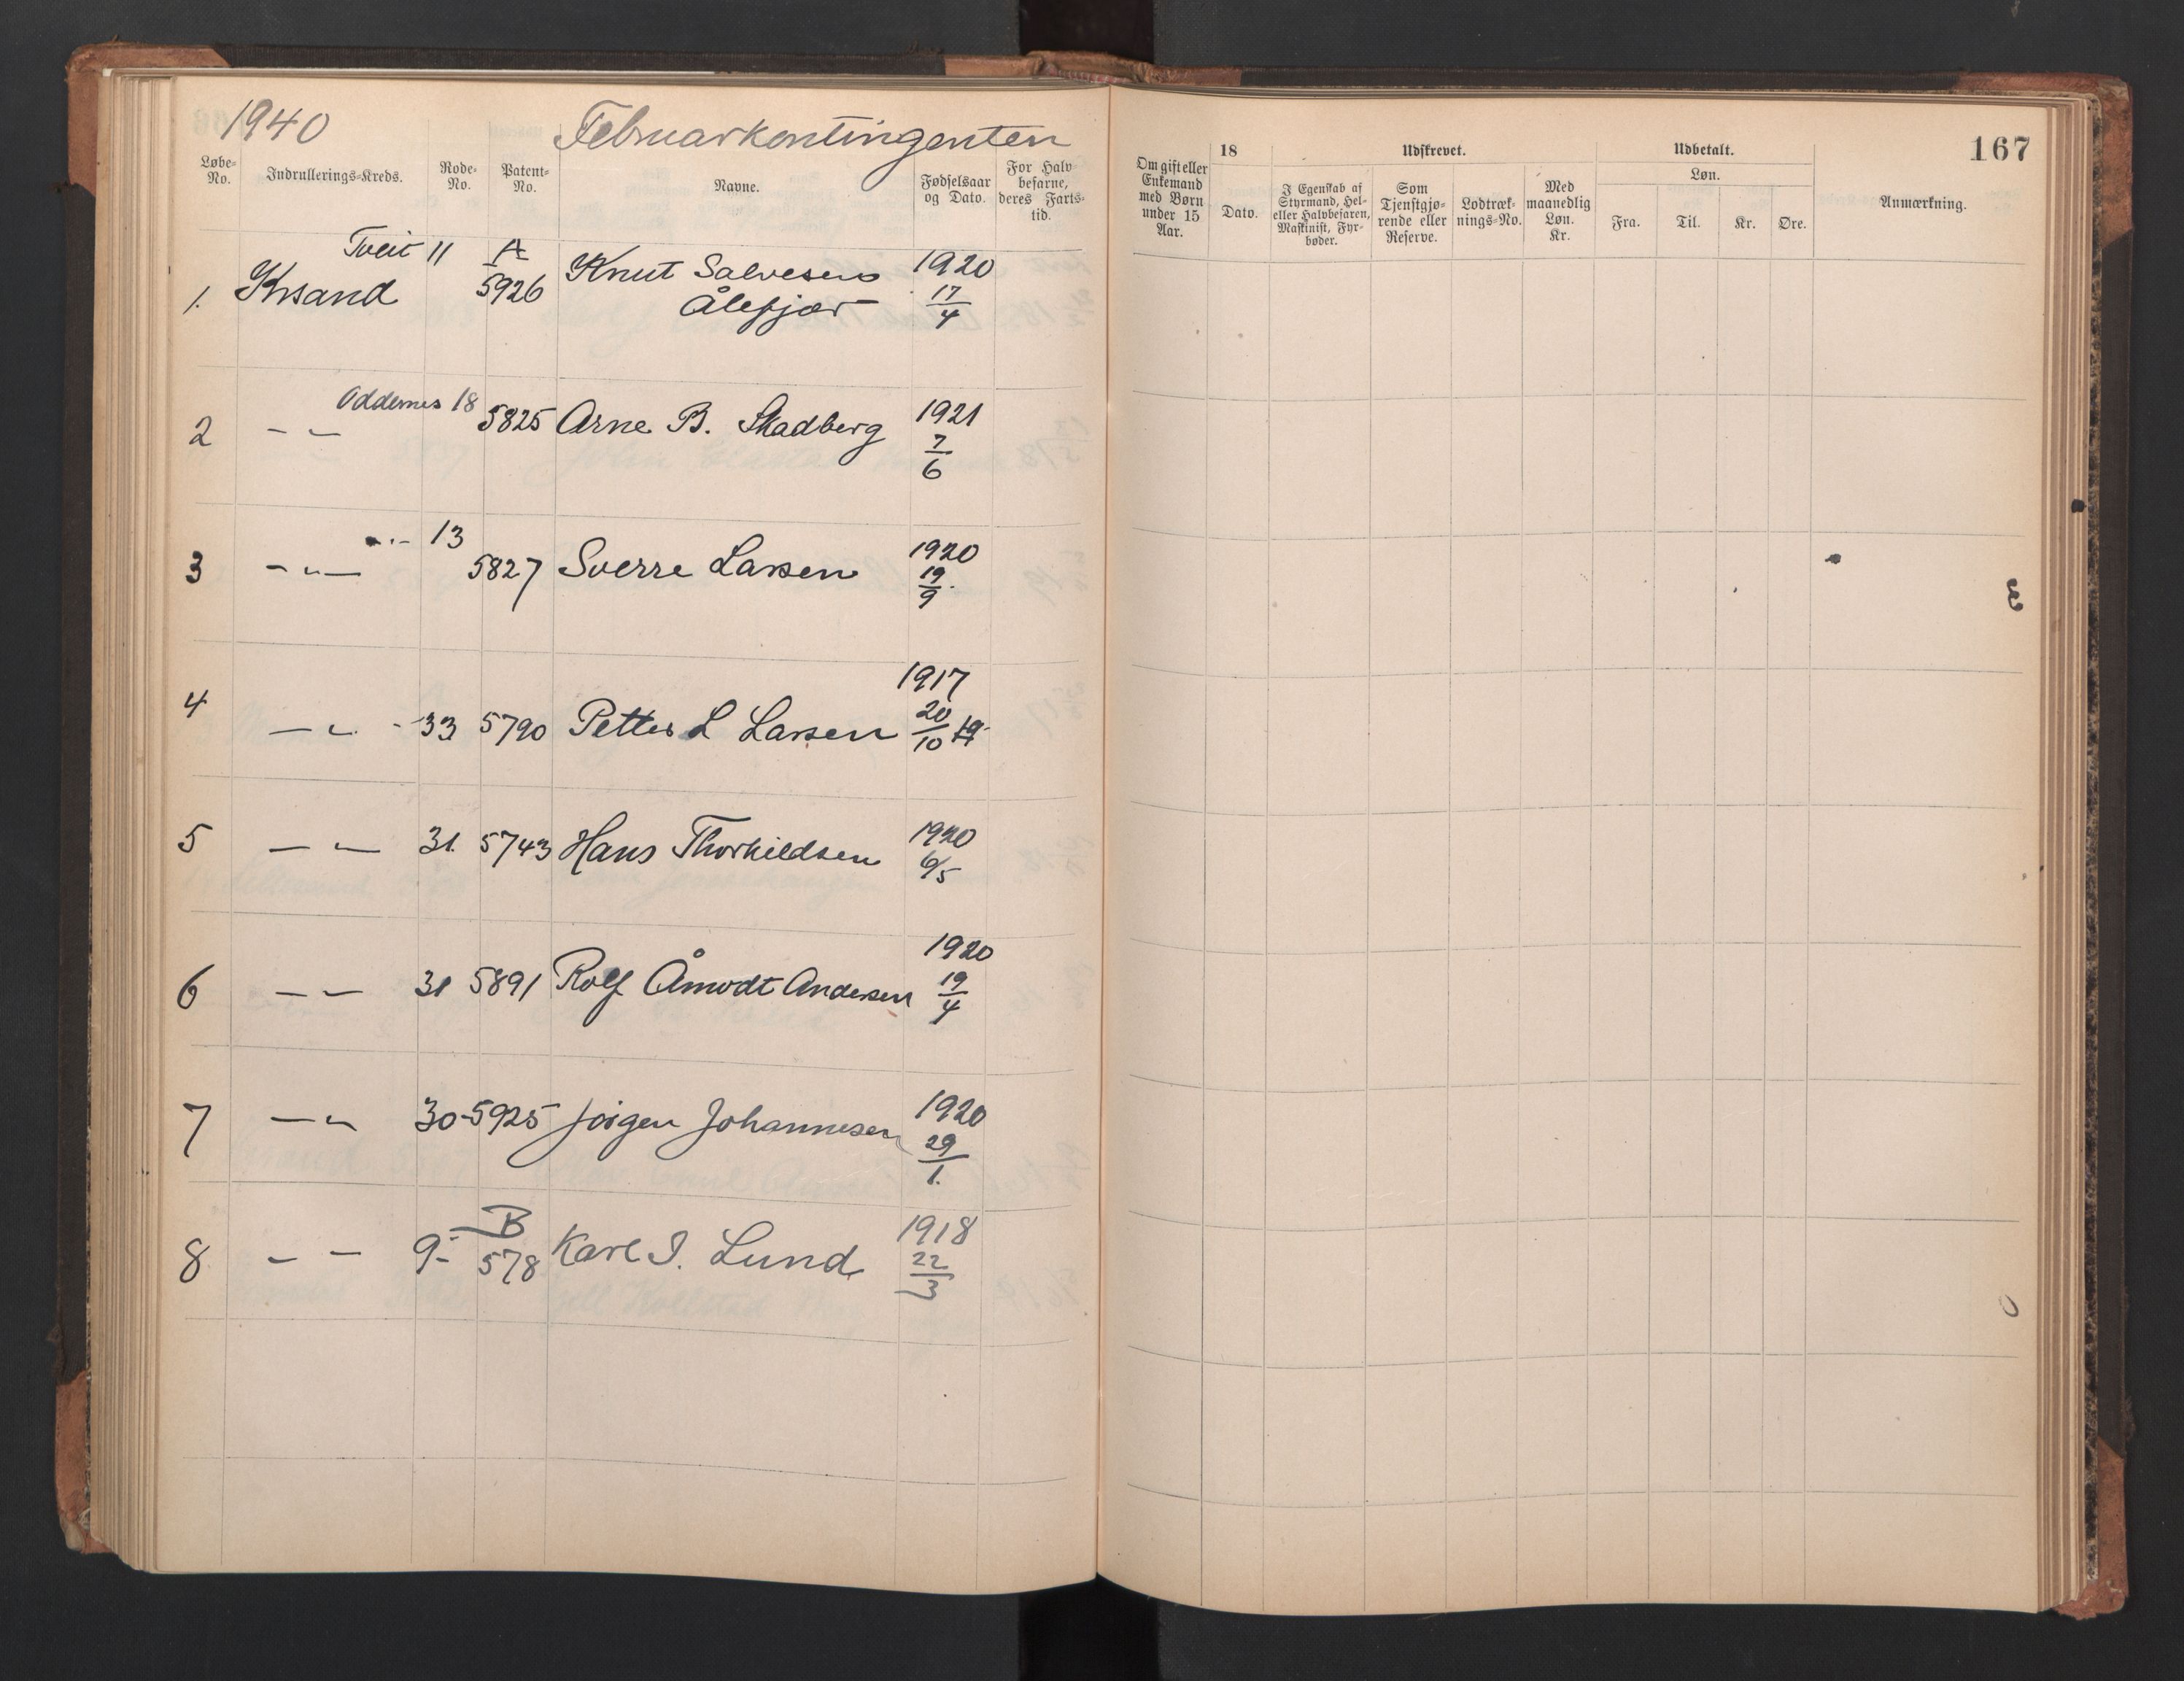 1940 Februarkontingenten
Løbe-No. Indrullerings-Kreds. Rode-No. Patent-No. Navne. Fødselsaar og Dato. For Halvbefarne, deres Fartstid.
Om gift eller Enkemand med Børn under 15 Aar. 18 Dato. Udskrevet. I Egenskab af Styrmand, Hel- eller Halvbefaren, Maskinist, Fyrbøder. Som Tjenstgjørende eller Reserve. Lodtræknings-No. Med maanedlig Løn. Kr. Udbetalt. Løn. Fra. Til. Kr. Øre. Anmærkning.
167
Tveit 11 A
1. Krsand 5926 Knut Salvesen 1920
Ålefjær 17/4
Oddernes 18
2 - " - 5825 Arne B. Stadberg 1921 7/6
- " - 13
3 - " - 5827 Sverre Larsen 1920 19/9
4 - " - 33 5790 Petter L Larsen 1917 20/10
5 - " - 31. 5743 Hans Thorkildsen 1920 6/5
6 - " - 31 5891 Rolf Åmodt Andersen 1920 19/4
7 - " - 30 5925 Jørgen Johannesen 1920 29/1.
B
8 - " - 9 578 Karl I. Lund 1918 22/3